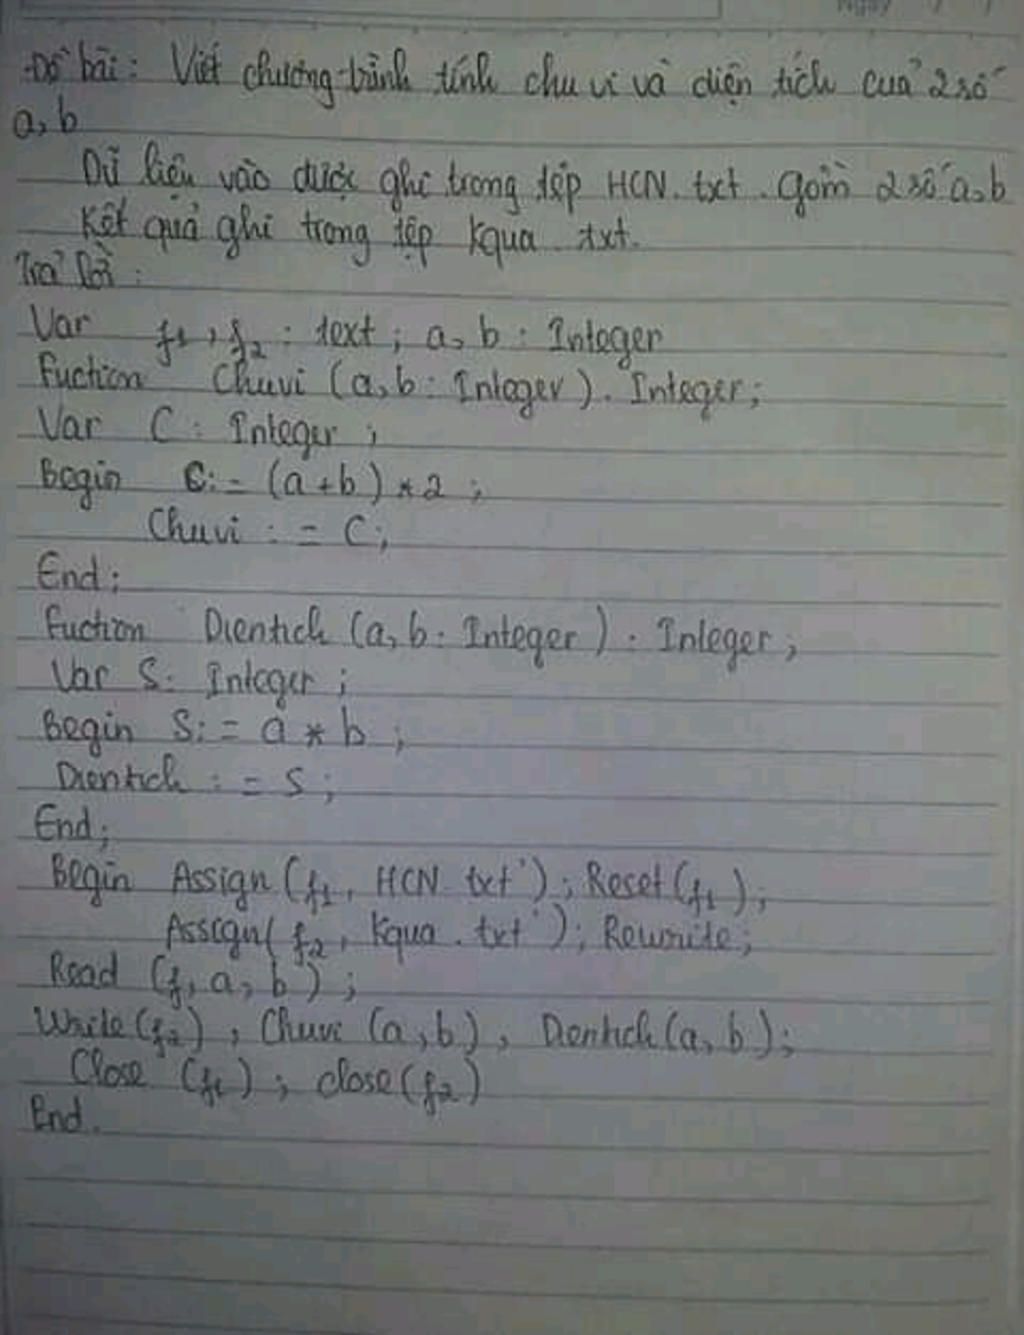 Đề bài: Viết chương trình tính chu vi và diện tích của 2 số
a, b
Dữ liệu vào được ghi trong tệp HCN.txt. Gồm 2 số a, b
Kết quả ghi trong tệp Kqua.txt.
Trả lời:
Var f1, f2: text; a, b: Integer
Fuction Chuvi (a, b: Integer). Integer;
Var C: Integer;
Begin C:= (a+b)*2;
Chuvi := C;
End;
Fuction Dientich (a, b: Integer). Integer;
Var S: Integer;
Begin S:= a * b;
Dientich := S;
End;
Begin Assign (f1, HCN txt'); Reset (f1);
Assign( f2, Kqua.txt'); Rewrite;
Read (f, a, b);
Write (f2), Chuvi (a, b), Dientich (a, b);
Close (f1); close (f2)
End.